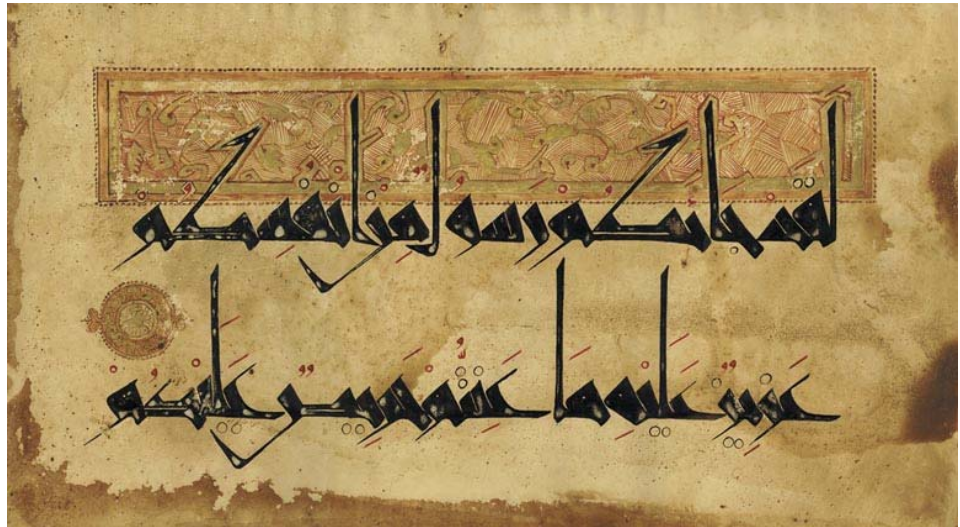 لَقَد جَاءَكُم رَسُولٌ مِّن أَنفُسِكُم
عَزِيزٌ عَلَيهِ مَا عَنِتُّم حَرِيصٌ عَلَيكُم